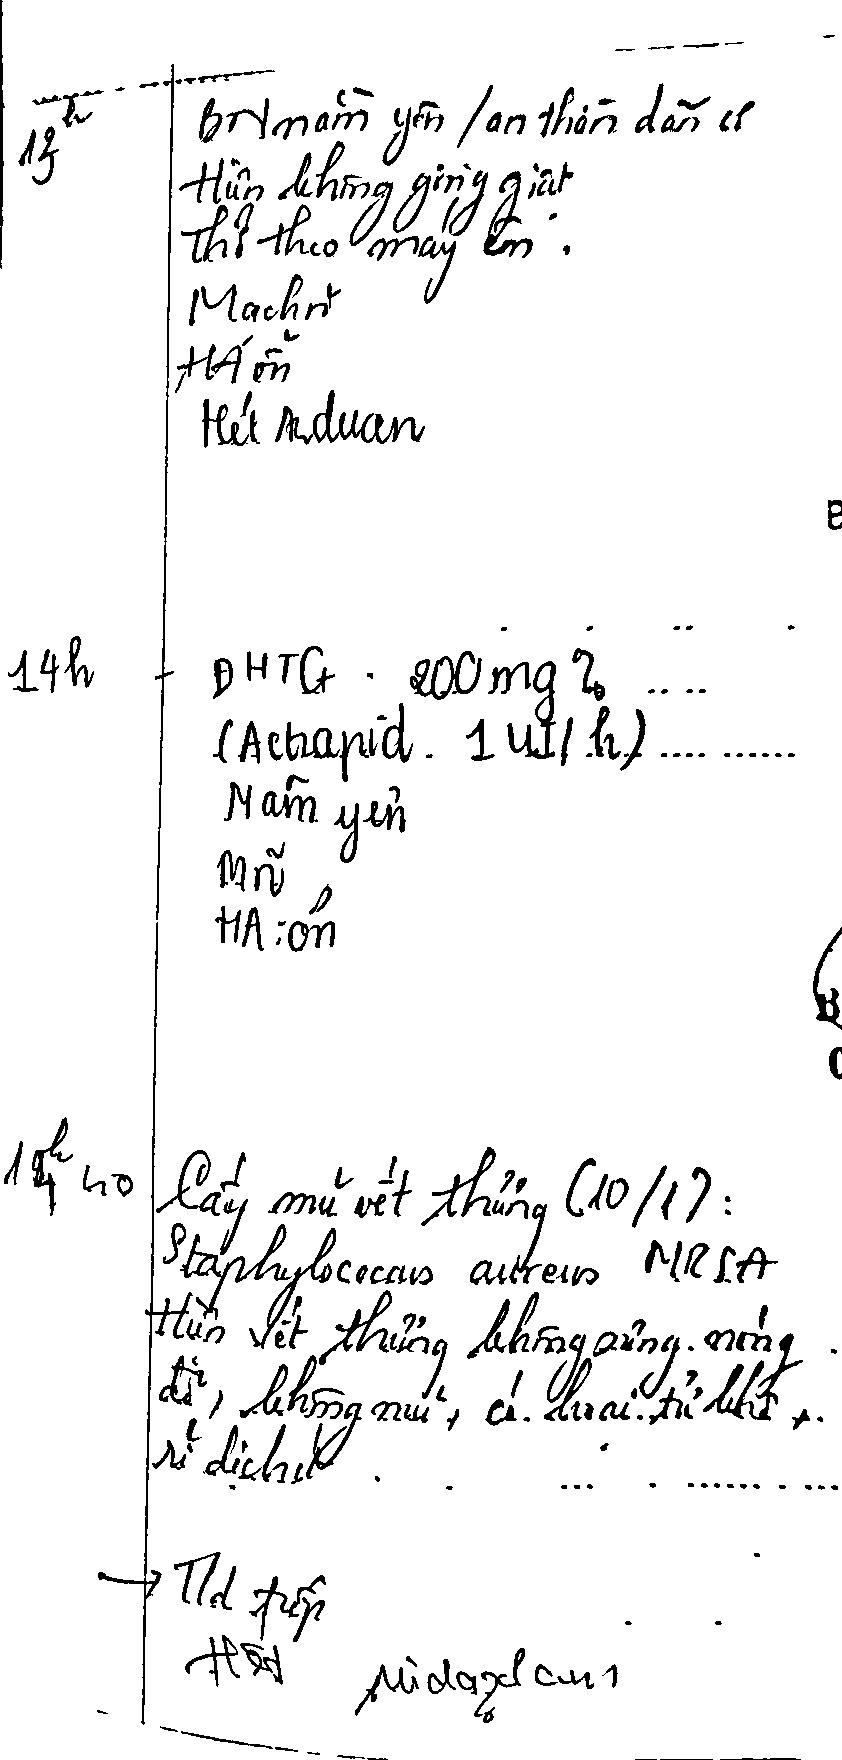 13h
BN nằm yên / an thần dãn cơ
Hiện không gồng giật
Thở theo máy êm.
Mạch rõ
HA ổn
Hết Arduan
14h - ĐHTG. 200mg%
(Actrapid. 1UI/h)
Nằm yên
M rõ
HA: ổn
14h40 Cấy mủ vết thương (10/1):
Staphylococcus aureus MRSA
Hiện vết thương không sưng. nóng.
đỏ, không mủ, có. hoại. tử khô,
rỉ dịch ít
→ Tld tiếp
Midazolam